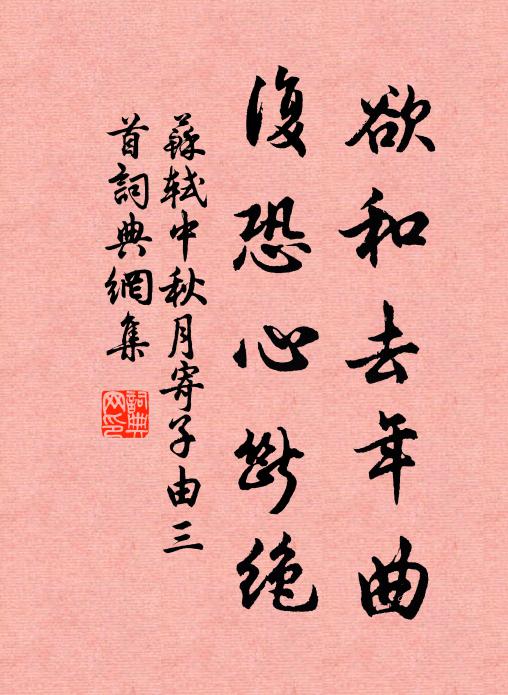 欲和去年曲
復恐心斷絕
蘇軾中秋月寄子由三
首詞典網集
詞典
网印